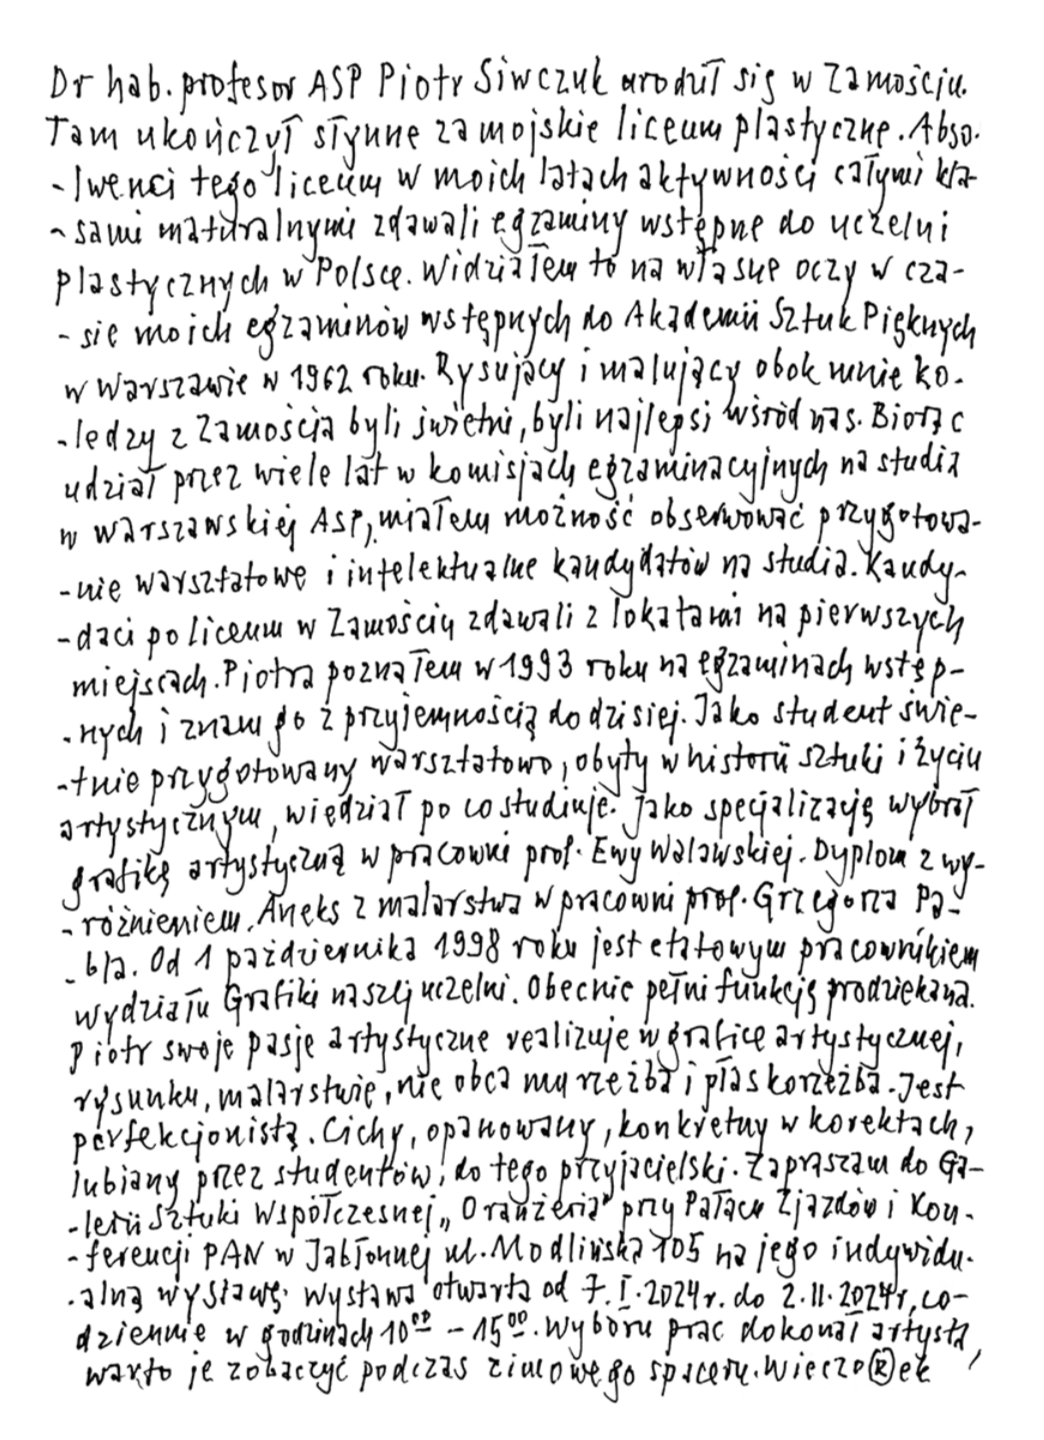 Dr hab. profesor ASP Piotr Siwczuk urodził się w Zamościu.
Tam ukończył słynne zamojskie liceum plastyczne. Abso-
-lwenci tego liceum w moich latach aktywności całymi kla-
-sami maturalnymi zdawali egzaminy wstępne do uczelni
plastycznych w Polsce. Widziałem to na własne oczy w cza-
-sie moich egzaminów wstępnych do Akademii Sztuk Pięknych
w Warszawie w 1962 roku. Rysujący i malujący obok mnie ko-
-ledzy z Zamościa byli świetni, byli najlepsi wśród nas. Biorąc
udział przez wiele lat w komisjach egzaminacyjnych na studia
w warszawskiej ASP, miałem możność obserwować przygotowa-
-nie warsztatowe i intelektualne kandydatów na studia. Kandy-
-daci po liceum w Zamościu zdawali z lokatami na pierwszych
miejscach. Piotra poznałem w 1993 roku na egzaminach wstęp-
-nych i znam go z przyjemnością do dzisiej. Jako student świe-
-tnie przygotowany warsztatowo, obyty w historii sztuki i życiu
artystycznym, wiedział po co studiuje. Jako specjalizację wybrał
grafikę artystyczną w pracowni prof. Ewy Walawskiej. Dyplom z wy-
-różnieniem. Aneks z malarstwa w pracowni prof. Grzegorza Pa-
-bla. Od 1 października 1998 roku jest etatowym pracownikiem
wydziału Grafiki naszej uczelni. Obecnie pełni funkcję prodziekana.
Piotr swoje pasje artystyczne realizuje w grafice artystycznej,
rysunku, malarstwie, nie obca mu rzeźba i płaskorzeźba. Jest
perfekcjonistą. Cichy, opanowany, konkretny w korektach,
lubiany przez studentów, do tego przyjacielski. Zapraszam do Ga-
-lerii Sztuki Współczesnej „Oranżeria" przy Pałacu Zjazdów i Kon-
-ferencji PAN w Jabłonnej ul. Modlińska 105 na jego indywidu-
-alną wystawę. Wystawa otwarta od 7.I.2024r. do 2.II.2024r, co-
dziennie w godzinach 10⁰⁰ - 15⁰⁰. Wyboru prac dokonał artysta,
warto je zobaczyć podczas zimowego spaceru. Wieczo®ek